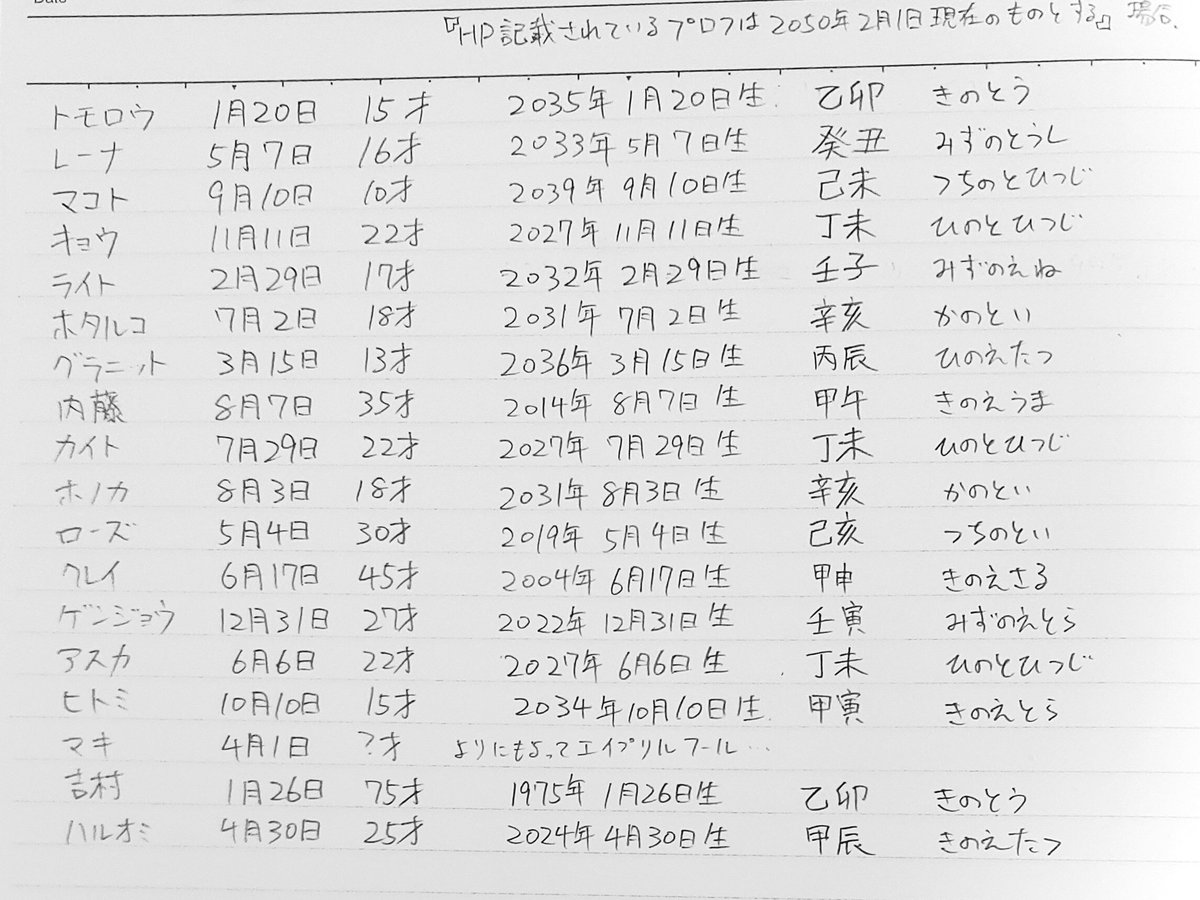 Date
『HP記載されているプロフは2050年2月1日現在のものとする』場合、
トモロウ 1月20日 15才 2035年1月20日生 乙卯 きのとう
レーナ 5月7日 16才 2033年5月7日生 癸丑 みずのとうし
マコト 9月10日 10才 2039年9月10日生 己未 つちのとひつじ
キョウ 11月11日 22才 2027年11月11日生 丁未 ひのとひつじ
ライト 2月29日 17才 2032年2月29日生 壬子 みずのえね
ホタルコ 7月2日 18才 2031年7月2日生 辛亥 かのとい
グラニット 3月15日 13才 2036年3月15日生 丙辰 ひのえたつ
内藤 8月7日 35才 2014年8月7日生 甲午 きのえうま
カイト 7月29日 22才 2027年7月29日生 丁未 ひのとひつじ
ホノカ 8月3日 18才 2031年8月3日生 辛亥 かのとい
ローズ 5月4日 30才 2019年5月4日生 己亥 つちのとい
クレイ 6月17日 45才 2004年6月17日生 甲申 きのえさる
ゲンジョウ 12月31日 27才 2022年12月31日生 壬寅 みずのえとら
アスカ 6月6日 22才 2027年6月6日生 丁未 ひのとひつじ
ヒトミ 10月10日 15才 2034年10月10日生 甲寅 きのえとら
マキ 4月1日 ?才 よりにもよってエイプリルフール…
吉村 1月26日 75才 1975年1月26日生 乙卯 きのとう
ハルオミ 4月30日 25才 2024年4月30日生 甲辰 きのえたつ